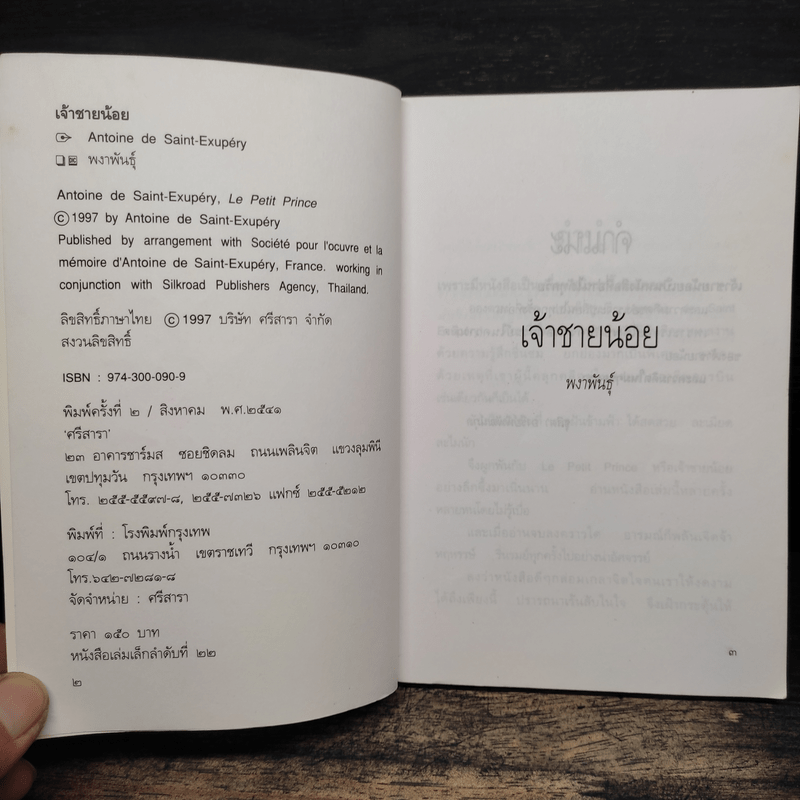 เจ้าชายน้อย
Antoine de Saint-Exupéry
พงาพันธุ์
Antoine de Saint-Exupéry, Le Petit Prince
©1997 by Antoine de Saint-Exupéry
Published by arrangement with Société pour l'ocuvre et la
mémoire d'Antoine de Saint-Exupéry, France. working in
conjunction with Silkroad Publishers Agency, Thailand.
ลิขสิทธิ์ภาษาไทย © 1997 บริษัท ศรีสารา จำกัด
สงวนลิขสิทธิ์
ISBN : 974-300-090-9
พิมพ์ครั้งที่ ๒ / สิงหาคม พ.ศ.๒๕๔๑
'ศรีสารา'
๒๓ อาคารชาร์มส ซอยชิดลม ถนนเพลินจิต แขวงลุมพินี
เขตปทุมวัน กรุงเทพฯ ๑๐๓๓๐
โทร. ๒๕๕-๕๕๙๗-๘, ๒๕๕-๗๓๒๖ แฟกซ์ ๒๕๕-๕๒๑๒
พิมพ์ที่ : โรงพิมพ์กรุงเทพ
๑๐๔/๑ ถนนรางน้ำ เขตราชเทวี กรุงเทพฯ ๑๐๓๑๐
โทร.๖๔๒-๗๒๘๑-๘
จัดจำหน่าย : ศรีสารา
ราคา ๑๕๐ บาท
หนังสือเล่มเล็กลำดับที่ ๒๒
๒
เจ้าชายน้อย
พงาพันธุ์
๓